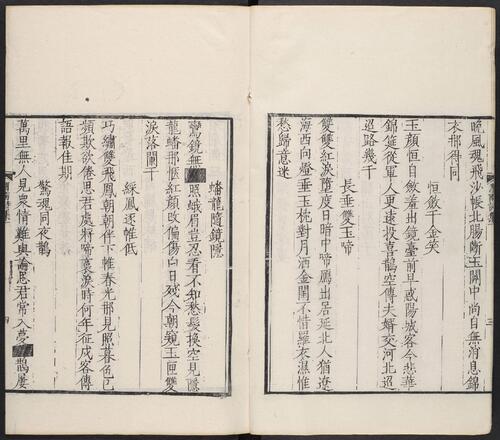 晩風魂飛沙帳北腸斷玉關中尚自無消息錦
衣那得同
恒斂千金笑
玉顏恒自斂羞出鏡臺前早惑陽城客今悲華
錦筵從軍人更遠投喜鵲空傳夫婿交河北迢
迢路幾千
長垂雙玉啼
雙雙紅淚墮度日暗中啼鴈出居延北人猶遼
海西向燈垂玉枕對月洒金閨不惜羅衣濕惟
愁歸意迷
蟠龍隨鏡隱
鸞鏡無照蛾眉豈忍看不知愁髮換空見隱
龍蟠那愜紅顏改偏傷白日殘今朝窺玉匣雙
淚落闌干
綵鳳逐帷低
巧繡雙飛鳳朝朝伴下帷春光那見照暮色已
頻欺欲卷思君處將啼裛淚時何年征戍客傳
語報佳期
驚魂同夜鵲
萬里無人見衆情難與論思君常入夢鵲屢